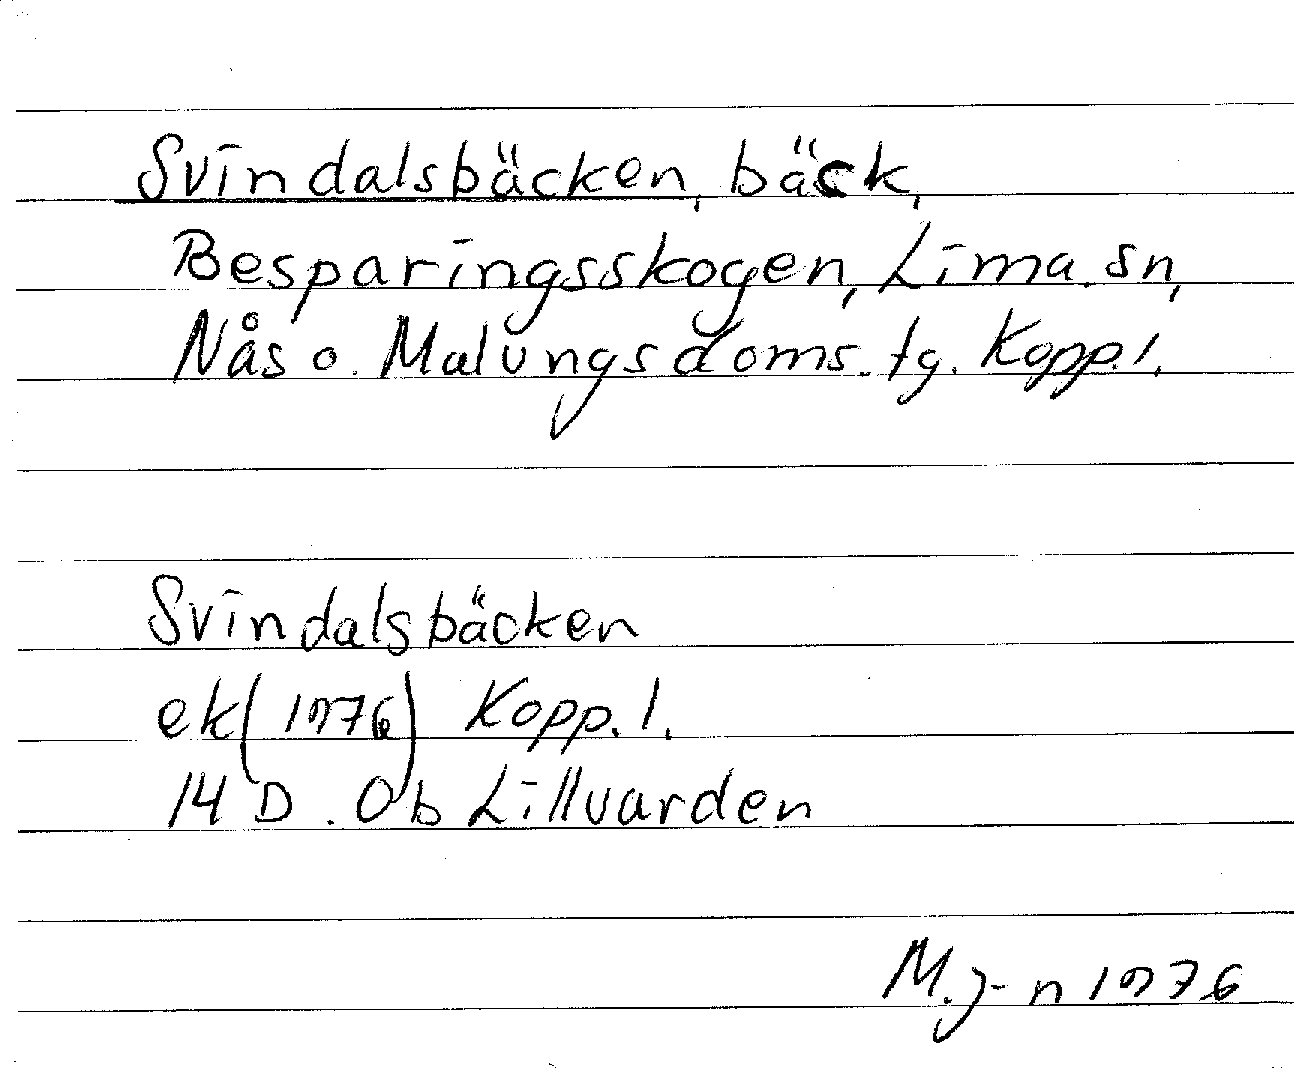 Svindalsbäcken, bäck,
Besparingsskogen, Lima sn,
Nås o. Malungs doms. tg. Kopp. l.
Svindalsbäcken
ek (1976) Kopp. l.
14 D. Ob Lillvarden
M. J-n 1976